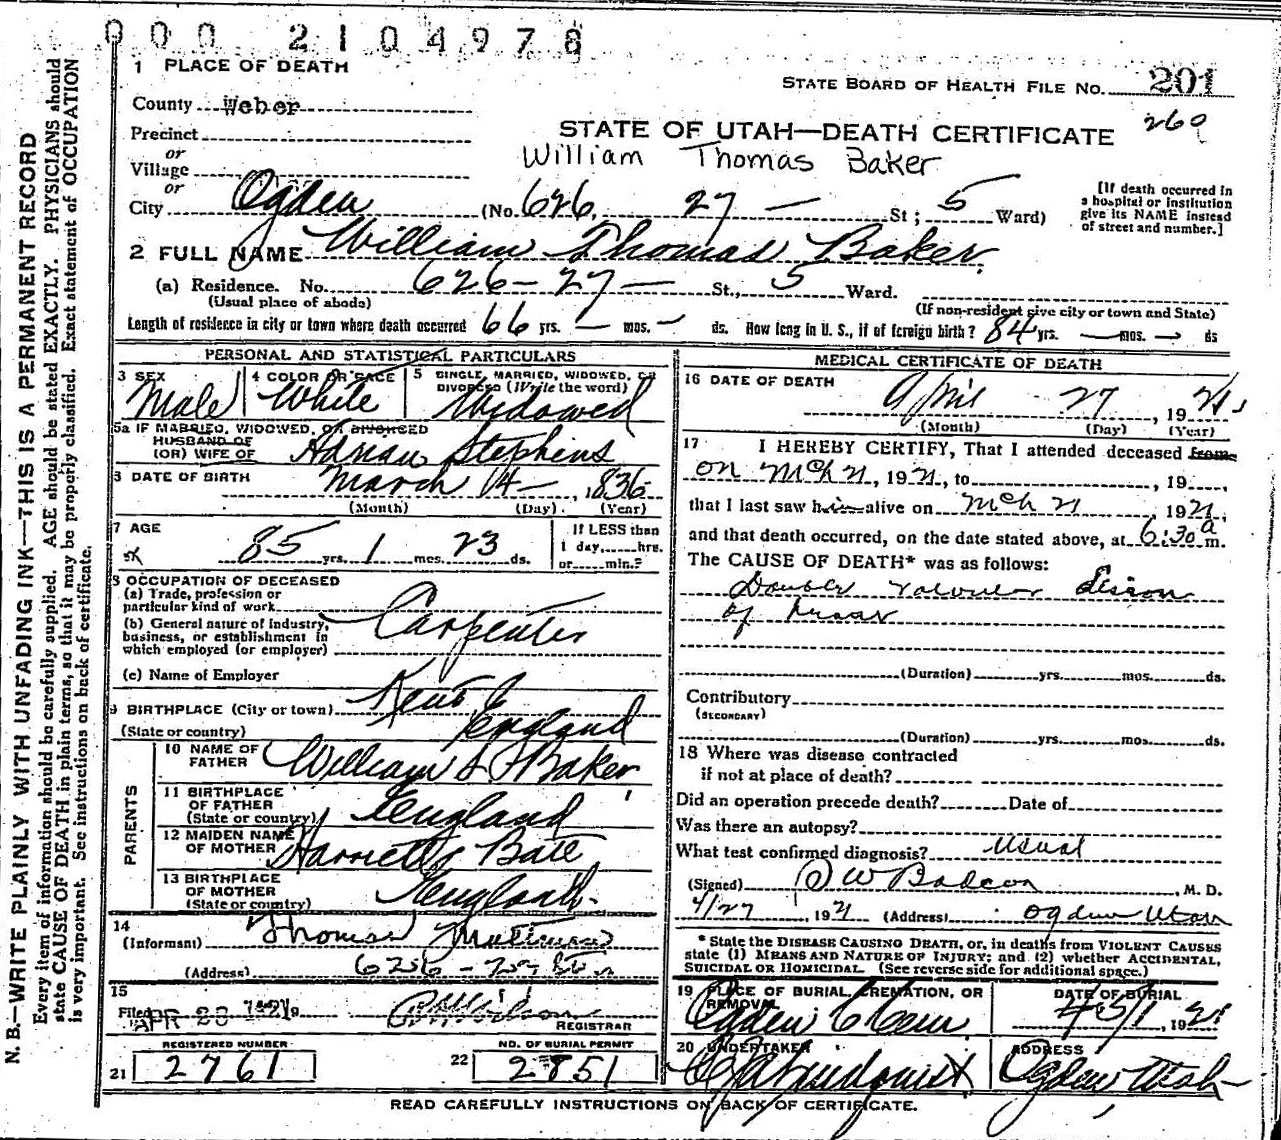 000 2104978
1 PLACE OF DEATH
STATE BOARD OF HEALTH FILE No. 201
County Weber
269
STATE OF UTAH—DEATH CERTIFICATE
Precinct
or
William Thomas Baker
Village
or
City Ogden (No. 626, 27 — St; 5 Ward)
[If death occurred in a hospital or institution give its NAME instead of street and number.]
2 FULL NAME William Thomas Baker
(a) Residence. No. 626 - 27 — St., 5 Ward.
(Usual place of abode) (If non-resident give city or town and State)
Length of residence in city or town where death occurred 66 yrs. — mos. — ds. How long in U. S., if of foreign birth? 84 yrs. — mos. — ds
PERSONAL AND STATISTICAL PARTICULARS
3 SEX
Male
4 COLOR OR RACE
White
5 SINGLE, MARRIED, WIDOWED, OR DIVORCED (Write the word)
Widowed
5a IF MARRIED, WIDOWED, OR DIVORCED
HUSBAND OF
(OR) WIFE OF Stephens
DATE OF BIRTH March 14 — , 1836
(Month) (Day) (Year)
7 AGE
85 yrs. 1 mos. 23 ds.
If LESS than
1 day, hrs.
or min.?
8 OCCUPATION OF DECEASED
(a) Trade, profession or
particular kind of work
Carpenter
(b) General nature of Industry,
business, or establishment in
which employed (or employer)
(c) Name of Employer
9 BIRTHPLACE (City or town) Kent
(State or country) England
PARENTS
10 NAME OF FATHER William Baker
11 BIRTHPLACE OF FATHER (State or country) England
12 MAIDEN NAME OF MOTHER
13 BIRTHPLACE OF MOTHER (State or country) England
14
(Informant) Thomas
(Address) 626 - 27 St.
15
Filed APR 28 1921
REGISTRAR
REGISTERED NUMBER
21 2761
NO. OF BURIAL PERMIT
22 2851
MEDICAL CERTIFICATE OF DEATH
16 DATE OF DEATH
April 27, 1921
(Month) (Day) (Year)
17 I HEREBY CERTIFY, That I attended deceased from
on Mch 21, 1921, to , 19
that I last saw him alive on Mch 21 , 1921,
and that death occurred, on the date stated above, at 6:30 a m.
The CAUSE OF DEATH* was as follows:
Double valvular lesion
of
(Duration) yrs. mos. ds.
Contributory
(SECONDARY)
(Duration) yrs. mos. ds.
18 Where was disease contracted
if not at place of death?
Did an operation precede death? Date of
Was there an autopsy?
What test confirmed diagnosis? usual
(Signed) , M. D.
4/27, 1921 (Address) Ogden Utah
* State the DISEASE CAUSING DEATH, or, in deaths from VIOLENT CAUSES
state (1) MEANS AND NATURE OF INJURY; and (2) whether ACCIDENTAL,
SUICIDAL OR HOMICIDAL. (See reverse side for additional space.)
19 PLACE OF BURIAL, CREMATION, OR REMOVAL
Ogden
DATE OF BURIAL
, 1921
20 UNDERTAKER
ADDRESS
Ogden, Utah
READ CAREFULLY INSTRUCTIONS ON BACK OF CERTIFICATE.
N. B.—WRITE PLAINLY WITH UNFADING INK—THIS IS A PERMANENT RECORD
Every item of information should be carefully supplied. AGE should be stated EXACTLY. PHYSICIANS should
state CAUSE OF DEATH in plain terms, so that it may be properly classified. Exact statement of OCCUPATION
is very important. See instructions on back of certificate.